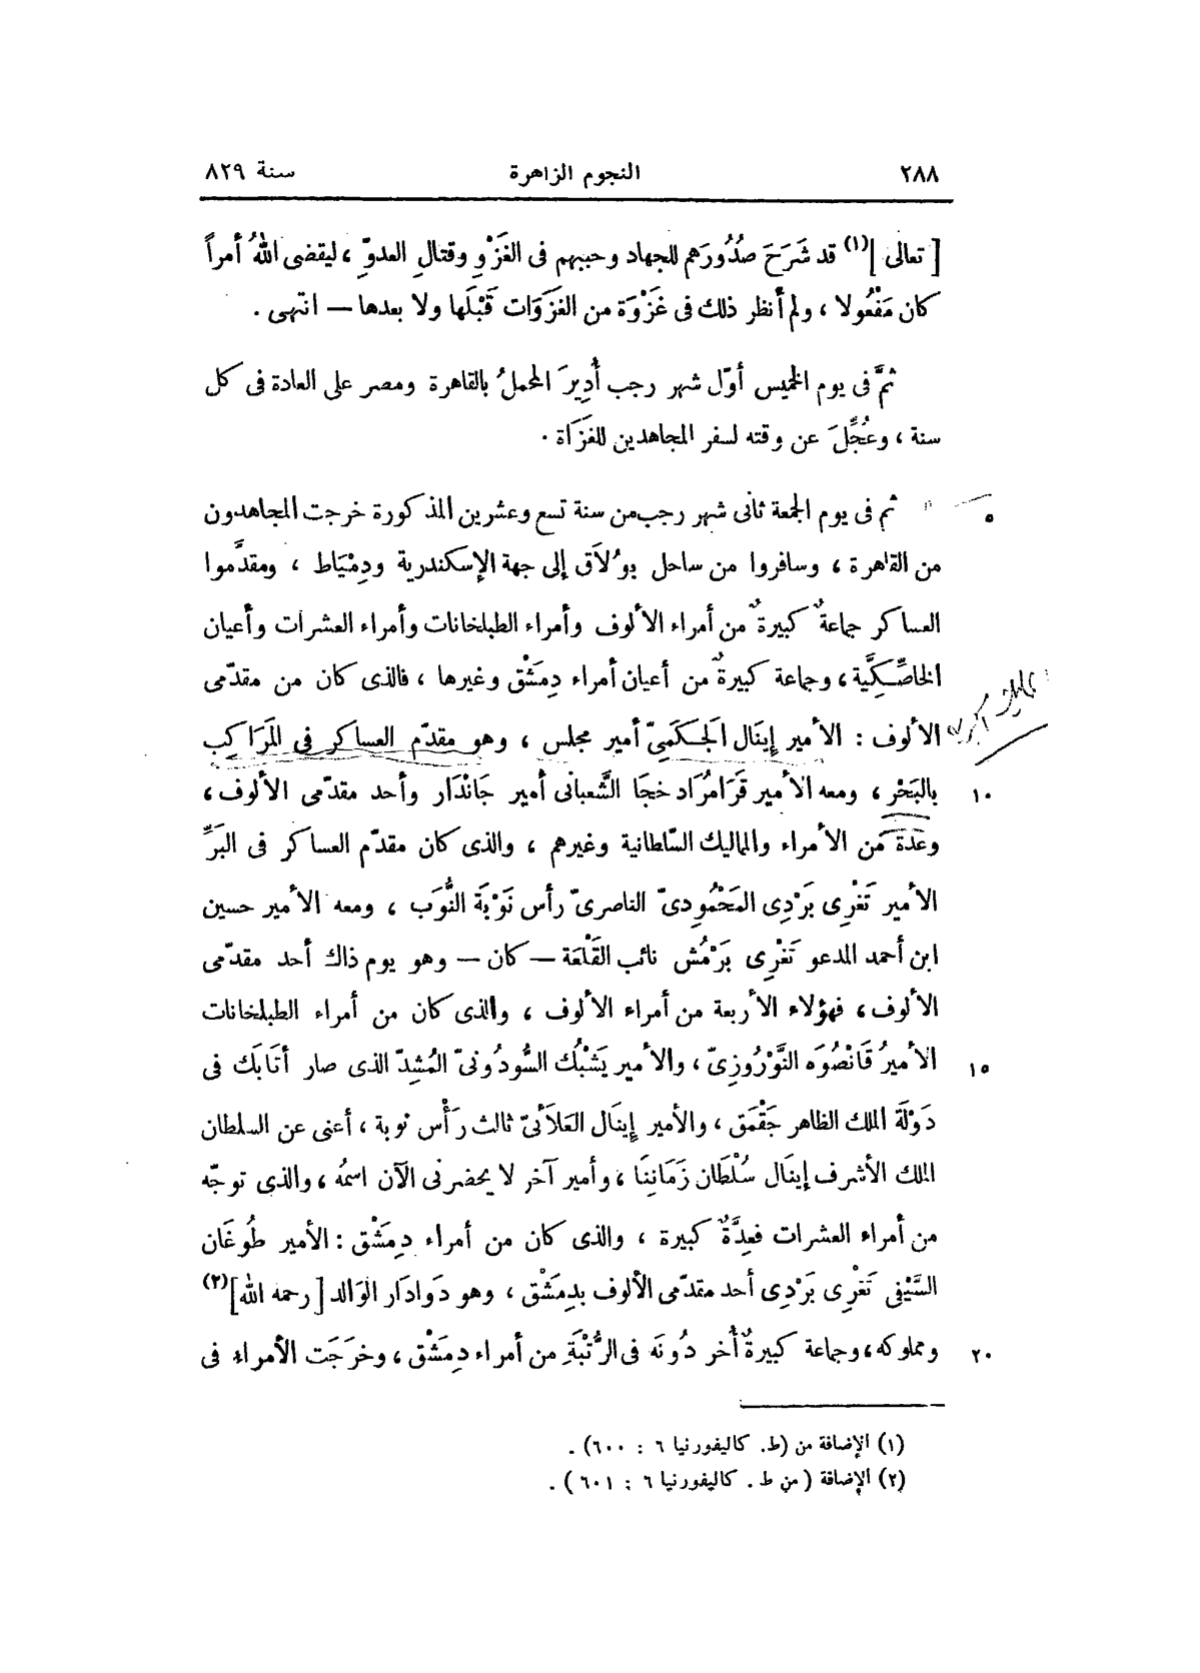 ٢٨٨ النجوم الزاهرة سنة ٨٢٩
[ تعالى ](١) قد شَرَحَ صُدُورَهم للجهاد وحببهم فى الغَزْوِ وقتالِ العدوّ ، ليقضى اللهُ أمراً
كان مَفْعُولا ، ولم أنظر ذلك فى غَزْوَة من الغَزَوَات قَبْلَها ولا بعدها — انتهى .
ثمَّ فى يوم الخميس أوّل شهر رجب أُدِيرَ المحملُ بالقاهرة ومصر على العادة فى كل
سنة ، وعُجِّلَ عن وقته لسفر المجاهدين للغَزَاة .
ثم فى يوم الجمعة ثانى شهر رجب من سنة تسع وعشرين المذكورة خرجت المجاهدون ٥
من القاهرة ، وسافروا من ساحل بُولَاق إلى جهة الإسكندرية ودِمْيَاط ، ومقدَّموا
العساكر جماعةٌ كبيرةٌ من أمراء الألوف وأمراء الطبلخانات وأمراء العشرات وأعيان
الخاصِّكِيَّة ، وجماعة كبيرةٌ من أعيان أمراء دِمَشْق وغيرها ، فالذى كان من مقدّمى
الألوف : الأمير إينَال الجَكَمِىّ أمير مجلس ، وهو مقدّم العساكر فى المَرَاكِب
بالبَحْر ، ومعه الأمير قَرَامُرَاد خجَا الشَّعبانى أمير جَانْدَار وأحد مقدّمى الألوف ، ١٠
وعدّة من الأمراء والماليك السّلطانية وغيرهم ، والذى كان مقدّم العساكر فى البَرِّ
الأمير تَغْرِى بَرْدِى المَحْمُودِىّ الناصرىّ رأس نَوْبَة النُّوَب ، ومعه الأمير حسين
ابن أحمد المدعو تَغْرِى بَرْمُش نائب القَلْعَة — كان — وهو يوم ذاك أحد مقدّمى
الألوف ، فهؤلاء الأربعة من أمراء الألوف ، والذى كان من أمراء الطبلخانات
الأميرُ قَانْصُوَه النَّوْرُوزِىّ ، والأمير يَشْبُك السُّودُونىّ المُشِدّ الذى صار أتَابَك فى ١٥
دَوْلَة الملك الظاهر جَقْمَق ، والأمير إينَال العَلَائىّ ثالث رَأْس نوبة ، أعنى عن السلطان
الملك الأشرف إينَال سُلْطَان زَمَانِنَا ، وأمير آخر لا يحضرنى الآن اسمُه ، والذى توجّه
من أمراء العشرات فعِدَّةٌ كبيرة ، والذى كان من أمراء دِمَشْق : الأمير طُوغَان
السَّيْفى تَغْرِى بَرْدِى أحد مقدّمى الألوف بدِمَشْق ، وهو دَوَادَار الوَالد [ رحمه الله ](٢)
ومملوكه ، وجماعة كبيرةٌ أُخر دُونَه فى الرُّتْبَةِ من أمراء دِمَشْق ، وخرَجَت الأمراء فى ٢٠
(١) الإضافة من (ط. كاليفورنيا ٦ : ٦٠٠) .
(٢) الإضافة ( من ط . كاليفورنيا ٦ : ٦٠١ ) .